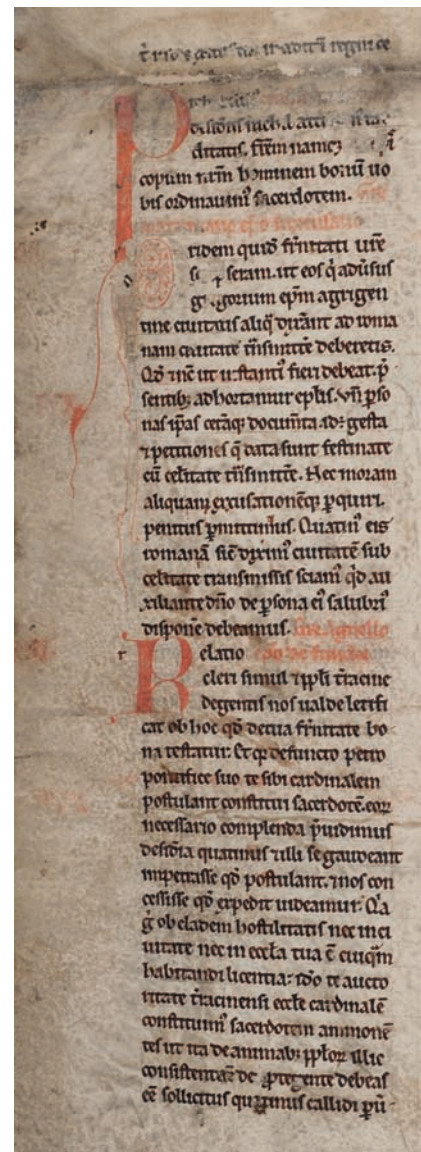 desidiis nichil acti
ditatis. fr̄em namq;
copum ur̄m hominem bonū uo
bis ordinauim᷒ sacerdotem.
ridem quidē fr̄nitati ur̄e
seram. ut eos q̄ aduersus
gregorium ep̄m agrigen
tine ciuitatis aliq̄ dixer̄t ad roma
nam ciuitatē tr̄nsmitte deberetis.
Qd̄ nē ut instanti᷒ fieri debeat. p̄
sentib; adhortamur ep̄lis. Vn̄ ꝑso
nas ip̄as cetaq; documt̄a id: gesta
⁊ petitiones q̄ data sunt festinate
cū celitate tr̄nsmitte. Nec moram
aliquam excusationēq; ꝑquiri.
penitus ꝑmittimus. Quatin᷒ eis
romanā sic̄ dixim᷒ ciuitatē sub
celitate transmissis sciam᷒ qd̄ au
xiliante dn̄o de ꝑsona ei᷒ salubri᷒
dispone debeamus. Gre. agnello
Relatio ep̄o de fundis
cleri simul ⁊ ppl̄i tr̄acine
degentis nos ualde letifi
cat ob hoc qd̄ de tua fr̄nitate bo
na testatur. Et q̄ defuncto petro
pontifice suo te sibi cardinalem
postulant constitui sacerdotē. eoꝝ
necessario complenda p̄uidimus
desid̄ia quatinus ⁊ illi se gaudeant
impetrasse qd̄ postulant. ⁊ nos con
cessisse qd̄ expedit uideamur. Q̄a
g̊ ob cladem hostilitatis nec in ci
uitate nec in eccl̄a tua ē cuiq̄m
habitandi licentia: id̄o te aucto
ritate tr̄acinensi eccl̄e cardinalē
constituim᷒ sacerdotem ammonē
tes ut ita de animab; ppl̄oꝝ illic
consistentiū dō ꝓtegente debeas
eē sollicitus quatinus callidi ꝑu-